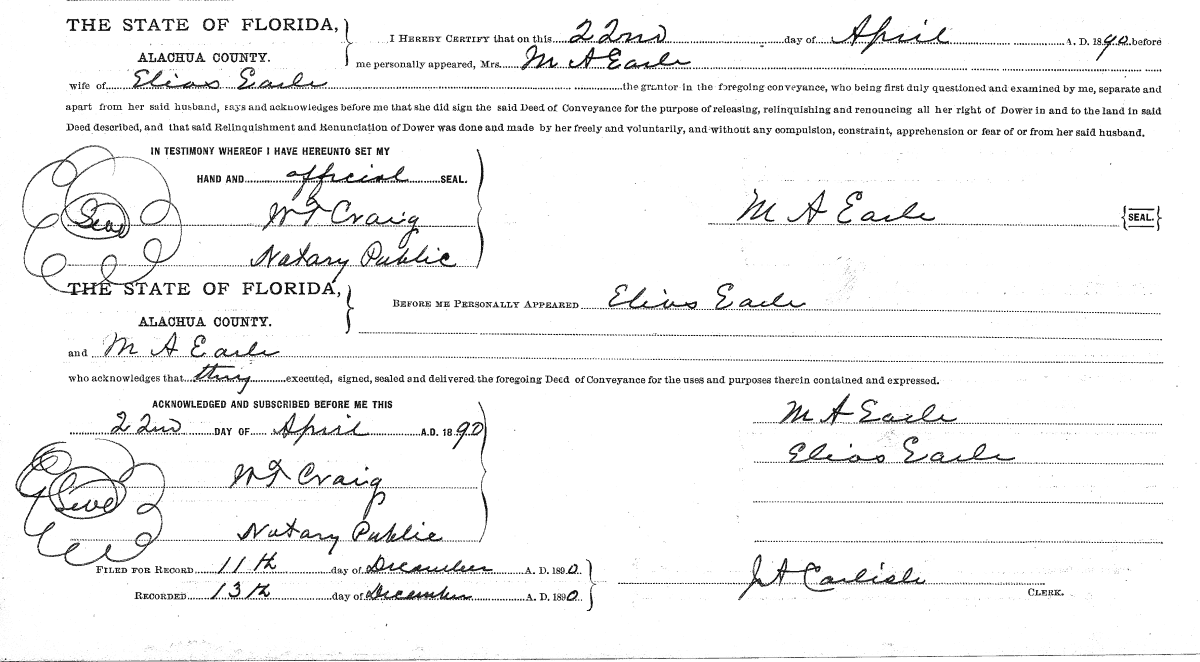 THE STATE OF FLORIDA, I HEREBY CERTIFY that on this 22nd day of April A. D. 1890 before
ALACHUA COUNTY. me personally appeared, Mrs. M A Earle
wife of Elias Earle the grantor in the foregoing conveyance, who being first duly questioned and examined by me, separate and
apart from her said husband, says and acknowledges before me that she did sign the said Deed of Conveyance for the purpose of releasing, relinquishing and renouncing all her right of Dower in and to the land in said
Deed described, and that said Relinquishment and Renunciation of Dower was done and made by her freely and voluntarily, and without any compulsion, constraint, apprehension or fear of or from her said husband.
IN TESTIMONY WHEREOF I HAVE HEREUNTO SET MY
HAND AND official SEAL.
Seal W T Craig M A Earle {SEAL.}
Notary Public
THE STATE OF FLORIDA, BEFORE ME PERSONALLY APPEARED Elias Earle
ALACHUA COUNTY.
and M A Earle
who acknowledges that they executed, signed, sealed and delivered the foregoing Deed of Conveyance for the uses and purposes therein contained and expressed.
ACKNOWLEDGED AND SUBSCRIBED BEFORE ME THIS M A Earle
22nd DAY OF April A.D. 1890
Elias Earle
Seal W T Craig
Notary Public
FILED FOR RECORD 11th day of December A. D. 1890.
J A Carlisle
RECORDED 13th day of December A. D. 1890 CLERK.